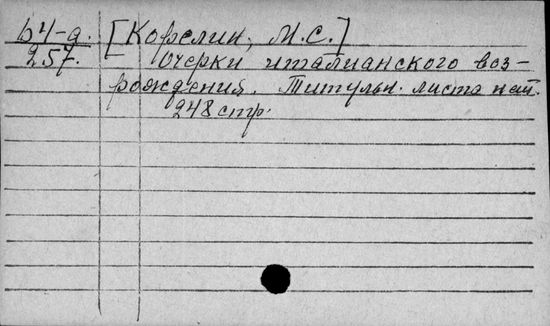 b4-a. [Корелин, М.С.]
257. Очерки итальянского воз-
рождения. Титульн. листа нет.
248 стр.